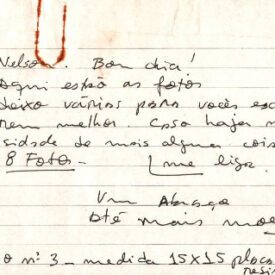 Nelson. Bom dia!
Aqui estão as fotos
deixo vários para vocês esc
rem melhor. Caso haja n
sidade de mais algum cois
8 Fotos - me liga.
Um Abraço
Até mais
o nº 3 - medida 15x15 placa
resi